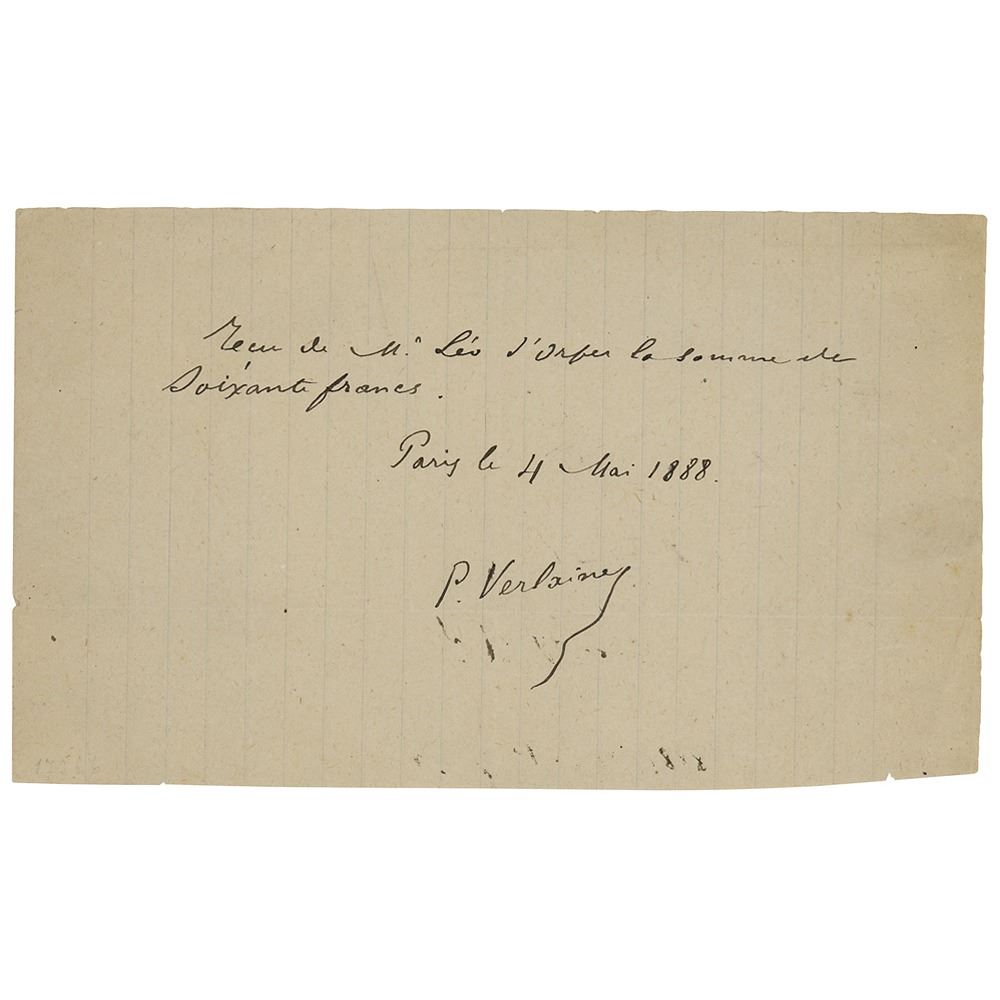 Recu de Mr Léo d'Orfer la somme de
Soixante francs.
Paris le 4 Mai 1888.
P. Verlaine